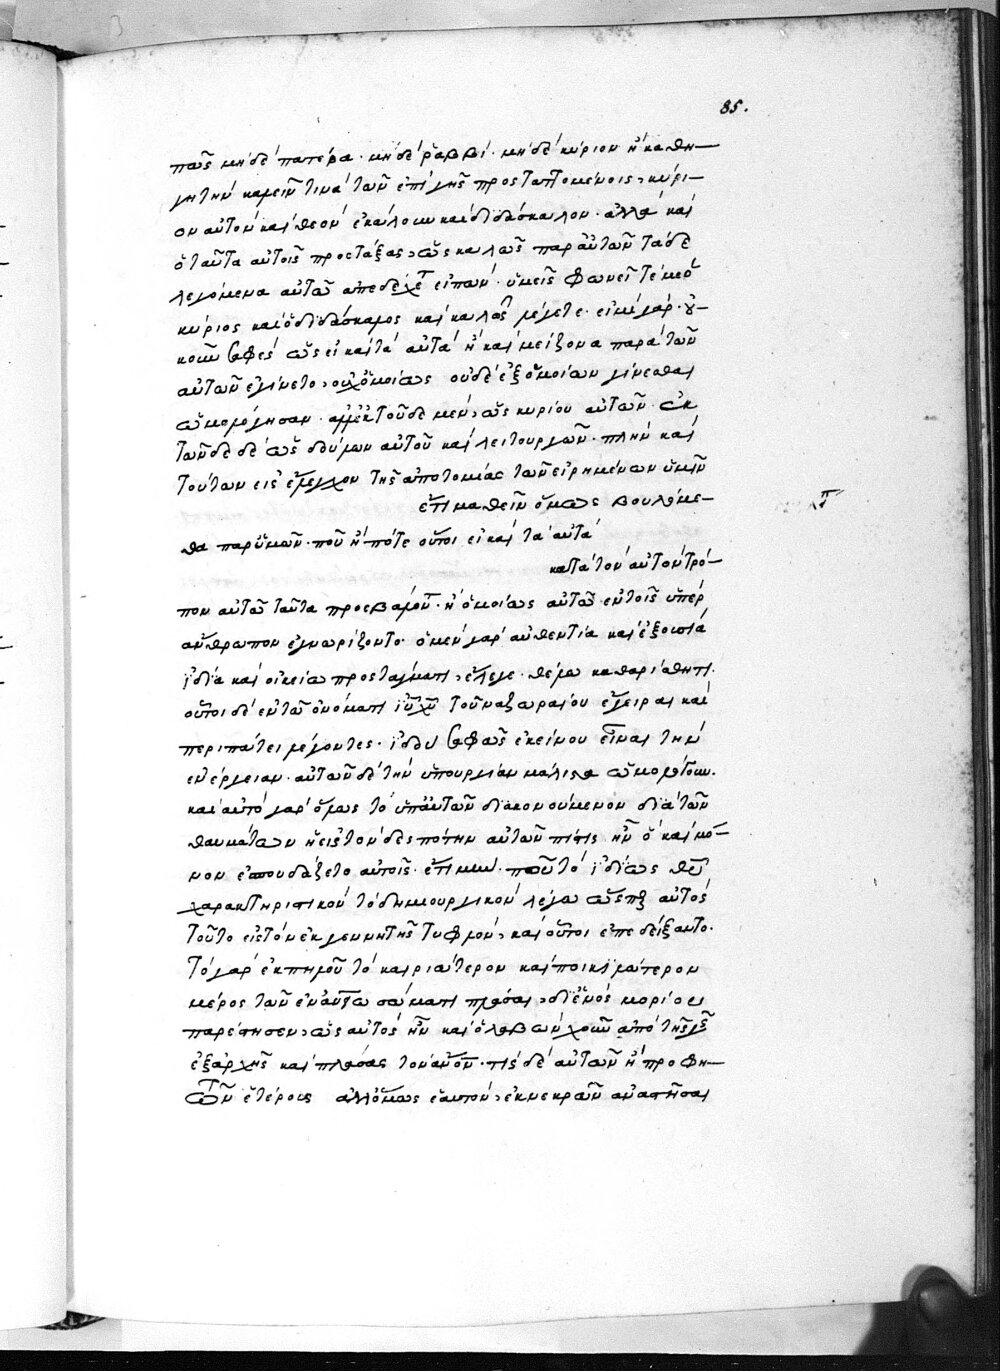 85.
παῦς μηδὲ πατέρα· μηδὲ ῥαββί· μηδὲ κύριον ἢ καθη-
γητὴν καλεῖν τινὰ τῶν ἐπὶ γῆς προσταττόμενοις, κύρι-
ον αὐτὸν καὶ θεὸν ἐκάλουν καὶ διδάσκαλον· ἀλλὰ καὶ
ὁ ταῦτα αὐτοῖς προστάξας, ὡς καλῶς παρ' αὐτῶν τάδε
λεγόμενα αὐτῶ ἀπεδέχετο εἰπών· ὑμεῖς φωνεῖτέ με ὁ
κύριος καὶ ὁ διδάσκαλος καὶ καλῶς λέγετε· εἰμὶ γάρ· οὐ-
κοῦν σαφὲς ὡς εἰ καὶ τὰ αὐτὰ ἢ καὶ μείζονα παρὰ τῶν
αὐτῶν ἐγίνετο, οὐχ ὁμοίως οὐδὲ ἐξ ὁμοίων γίνεσθαι
ὡμολόγησαν· ἀλλ' ἐκ τοῦδε μὲν, ὡς κυρίου αὐτῶν· ἐκ
τῶνδε δὲ ὡς δούλων αὐτοῦ καὶ λειτουργῶν· πλὴν καὶ
τούτων εἰς ἔλεγχον τῆς ἀποτομίας τῶν εἰρημένων ὑμῖν
ἔτι μαθεῖν ὅμως βουλόμε-
θα παρ' ὑμῶν· ποῦ ἢ πότε οὗτοι εἰ καὶ τὰ αὐτὰ
κατὰ τὸν αὐτὸν τρό-
πον αὐτῶ ταῦτα προεβάλοντο· ἢ ὁμοίως αὐτῶ ἐν τοῖς ὑπὲρ
ἄνθρωπον ἐγνωρίζοντο· ὁ μὲν γὰρ αὐθεντία καὶ ἐξουσία
ἰδία καὶ οἰκείω προστάγματι, ἔλεγε· θέλω καθαρίσθητι·
οὗτοι δὲ ἐν τῶ ὀνόματι ἰυ χυ τοῦ ναζωραίου ἔγειραι καὶ
περιπάτει λέγοντες· ἰδοὺ σαφῶς ἐκείνου εἶναι τὴν
ἐνέργειαν· αὐτῶν δὲ τὴν ὑπουργίαν μάλιστα ὡμολόγουν·
καὶ αὐτὸ γὰρ ὅμως τὸ ὑπ' αὐτῶν διακονούμενον διὰ τῶν
θαυμάτων ἡ εἰς τὸν δεσπότην αὐτῶν πίστις ἦν ὃ καὶ μό-
νον ἐσπουδάζετο αὐτοῖς· ἔτι ποῦ τὸ ἰδίως θεοῦ
χαρακτηριστικὸν τὸ δημιουργικὸν λέγω ὥσπερ αὐτὸς
τοῦτο εἰς τὸν ἐκ γεννητῆς τυφλὸν, καὶ οὗτοι ἐπεδείξαντο·
τὸ γὰρ ἐκ πηλοῦ τὸ καιριώτερον καὶ ποικιλώτερον
μέρος τῶν ἐν αὐτῶ σώματι πλάσαι, δι' ἑνὸς μορίου
παρέστησεν, ὡς αὐτὸς ἦν καὶ ὁ λαβὼν χοῦν ἀπὸ τῆς γῆς
ἐξ ἀρχῆς καὶ πλάσας τὸν ἄνον· τίς δὲ αὐτῶν ἢ προφη-
τῶν ἑτέρους ἀλλ' ὅμως ἑαυτὸν, ἐκ νεκρῶν ἀναστῆσαι